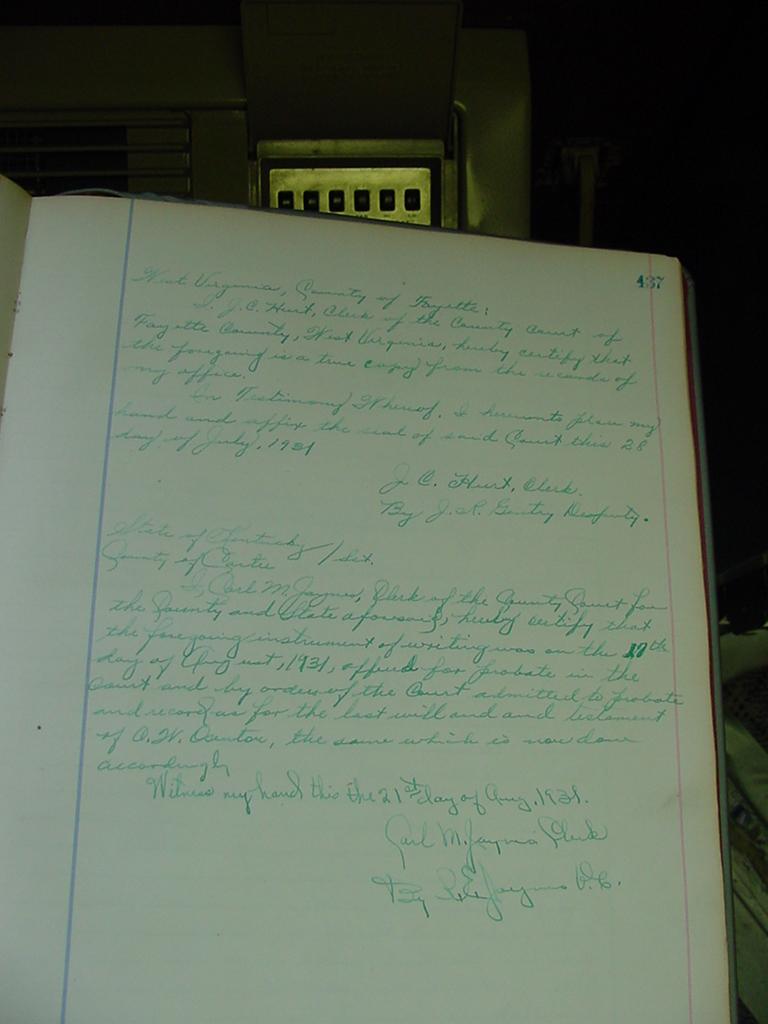 437
West Virginia, County of Fayette:
I. J.C. Hurt, Clerk of the County Court of
Fayette County, West Virginia, hereby certify that
the foregoing is a true copy from the records of
my office.
In Testimony Whereof, I hereunto place my
hand and affix the seal of said Court this 28
day of July, 1931
J C. Hurt, Clerk.
By J. R. Gentry Deputy.
State of Kentucky
County of Carter / Sct.
I, Carl M. Jaynes, Clerk of the County Court for
the County and State aforesaid, hereby certify that
the foregoing instrument of writing was on the 17th
day of August, 1931, offered for probate in the
Court and by orders of the Court admitted to probate
and record as for the last will and and testament
of O. W. the same which is now done
accordingly
Witness my hand this the 21st day of Aug, 1931.
Carl M. Jaynes Clerk
By Jaynes D.C.